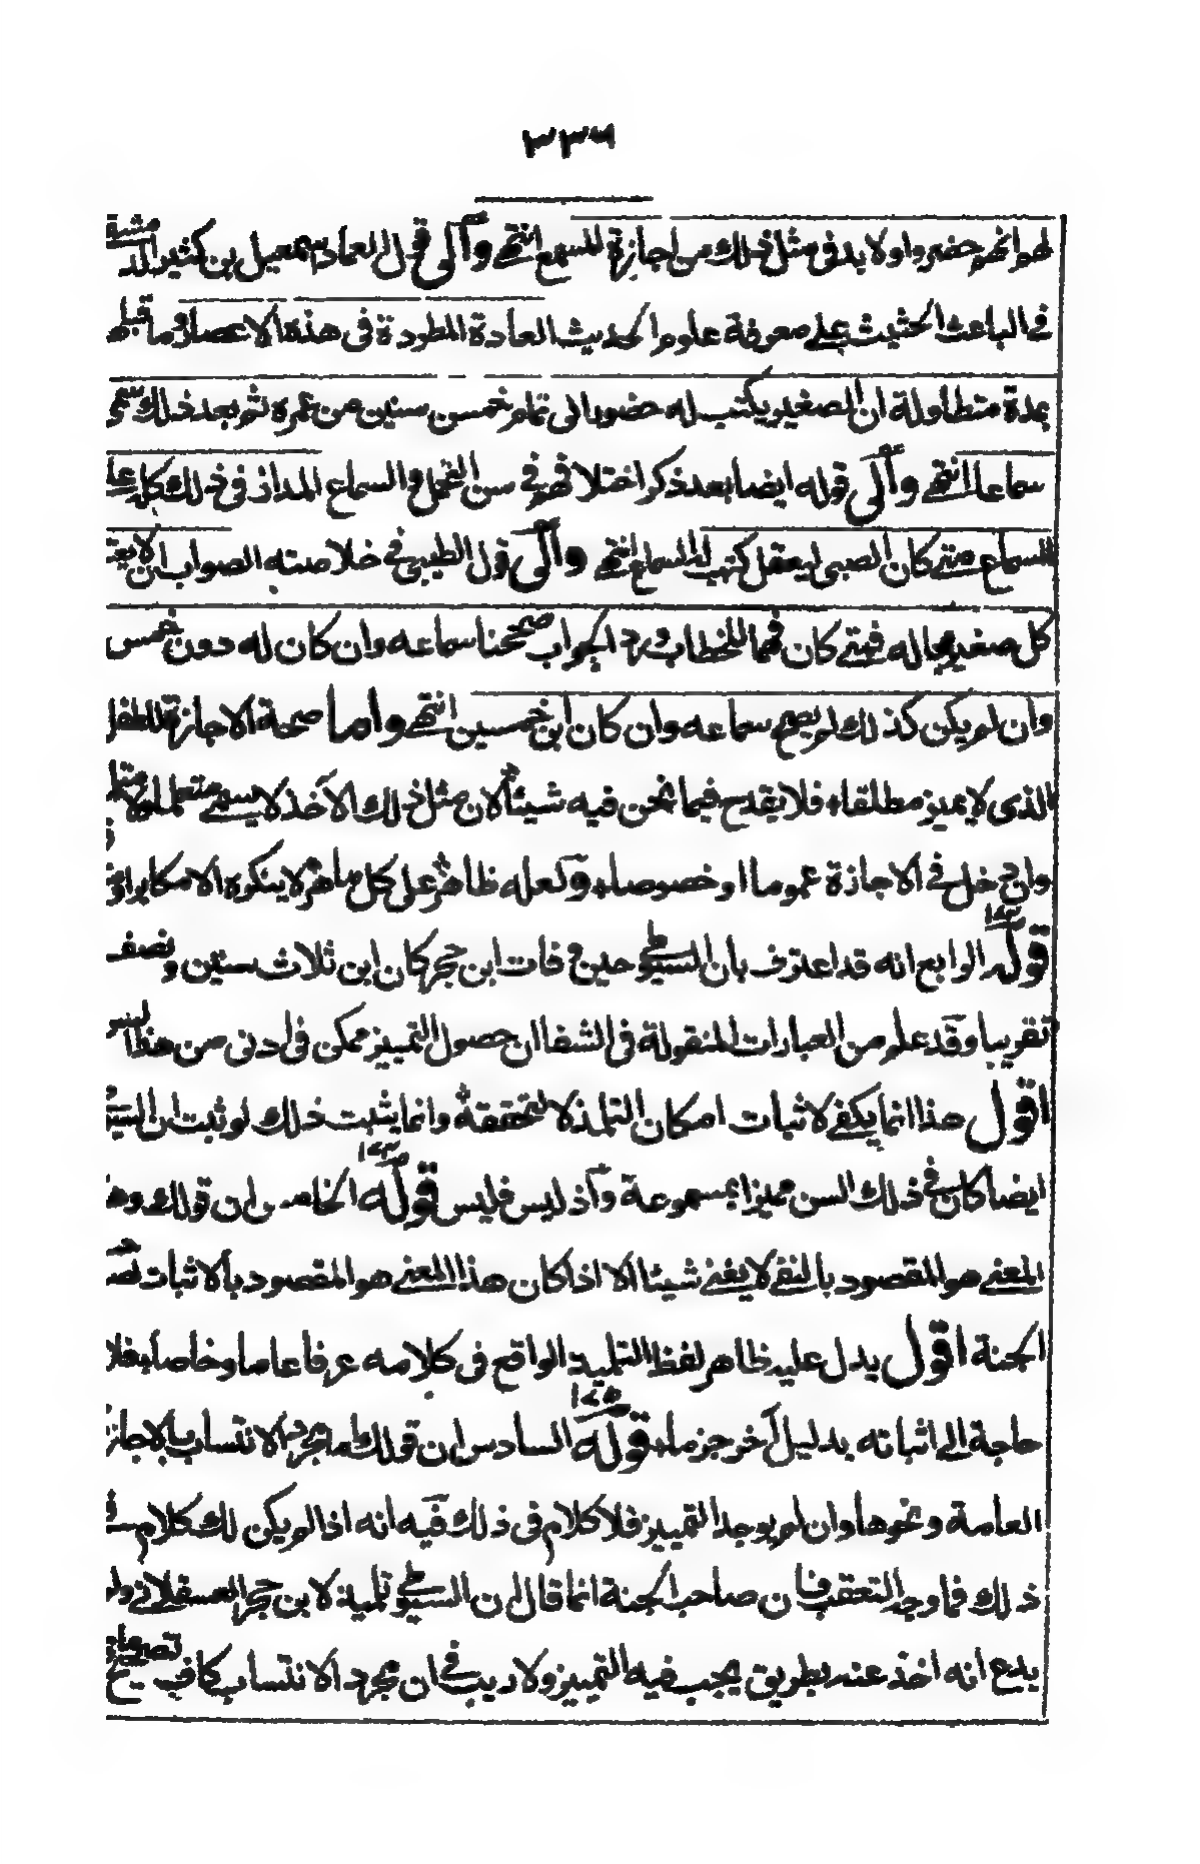 ٣٣٦
لهم انهم حضروا ولا بد فى مثل ذلك من اجازة المسمع انتهى وآلى قول العماد اسمعيل بن كثير الدمشقى
فى الباعث الحثيث على معرفة علوم الحديث العادة المطردة فى هذه الاعصار وما قبلها
بمدة متطاولة ان الصغير يكتب له حضور الى تمام خمس سنين من عمره ثم بعد ذلك سمى
سماعا انتهى وآلى قوله ايضا بعد ذكر اختلافهم فى سن التحمل والسماع المدار فى ذلك كله على
السماع متى كان الصبى ليعقل كتب له السماع انتهى وآلى قول الطيبى فى خلاصته الصواب ان يعتبر
كل صغير بحاله فمتى كان فهما للخطاب ورد الجواب صححنا سماعه وان كان له دون خمس
وان لم يكن كذلك لم يصح سماعه وان كان ابن خمسين انتهى واما صحة الاجازة للطفل
الذى لا يميز مطلقا، فلا يقدح فيما نحن فيه شيئا لان مثل ذلك الآخذ لا يسمى متعلما ولا
وان دخل فى الاجازة عموما او خصوصا، وكعله ظاهر على كل ماهر لا ينكره الا مكابر او
قوله ١٤٣ الرابع انه قد اعترف بان السيوطى حين فات ابن حجر كان ابن ثلاث سنين ونصف
تقريبا وقد علم من العبارات المنقولة فى الشفا ان حصول التمييز ممكن فى ادنى من هذا السن
اقول هذا انما يكفى لاثبات امكان التلمذ لا لتحققه وانما يثبت ذلك لو ثبت ان السيوطى
ايضا كان فى ذلك السن مميزا بمسموعة واذ ليس فليس قوله ١٤٣ الخامس ان قولك وهذا
المعنى هو المقصود بالنفى لا يغنى شيئا الا اذا كان هذا المعنى هو المقصود بالاثبات
الجنة اقول يدل عليه ظاهر لفظ التلميذ الواقع فى كلامه عرفا عاما وخاصا، فلا
حاجة الى اثباته بدليل آخر جزما، قوله ١٤٥ السادس ان قولك اما مجرد الانتساب بالاجازة
العامة ونحوها وان لم يوجد التمييز فلا كلام فى ذلك فيه انه اذا لم يكن لك كلام فى
ذلك فما وجه التعقب فان صاحب الجنة انما قال ان السيوطى تلميذ لابن حجر العسقلانى ولم
يدع انه اخذ عنه بطريق يجب فيه التمييز ولا ريب فى ان مجرد الانتساب كاف